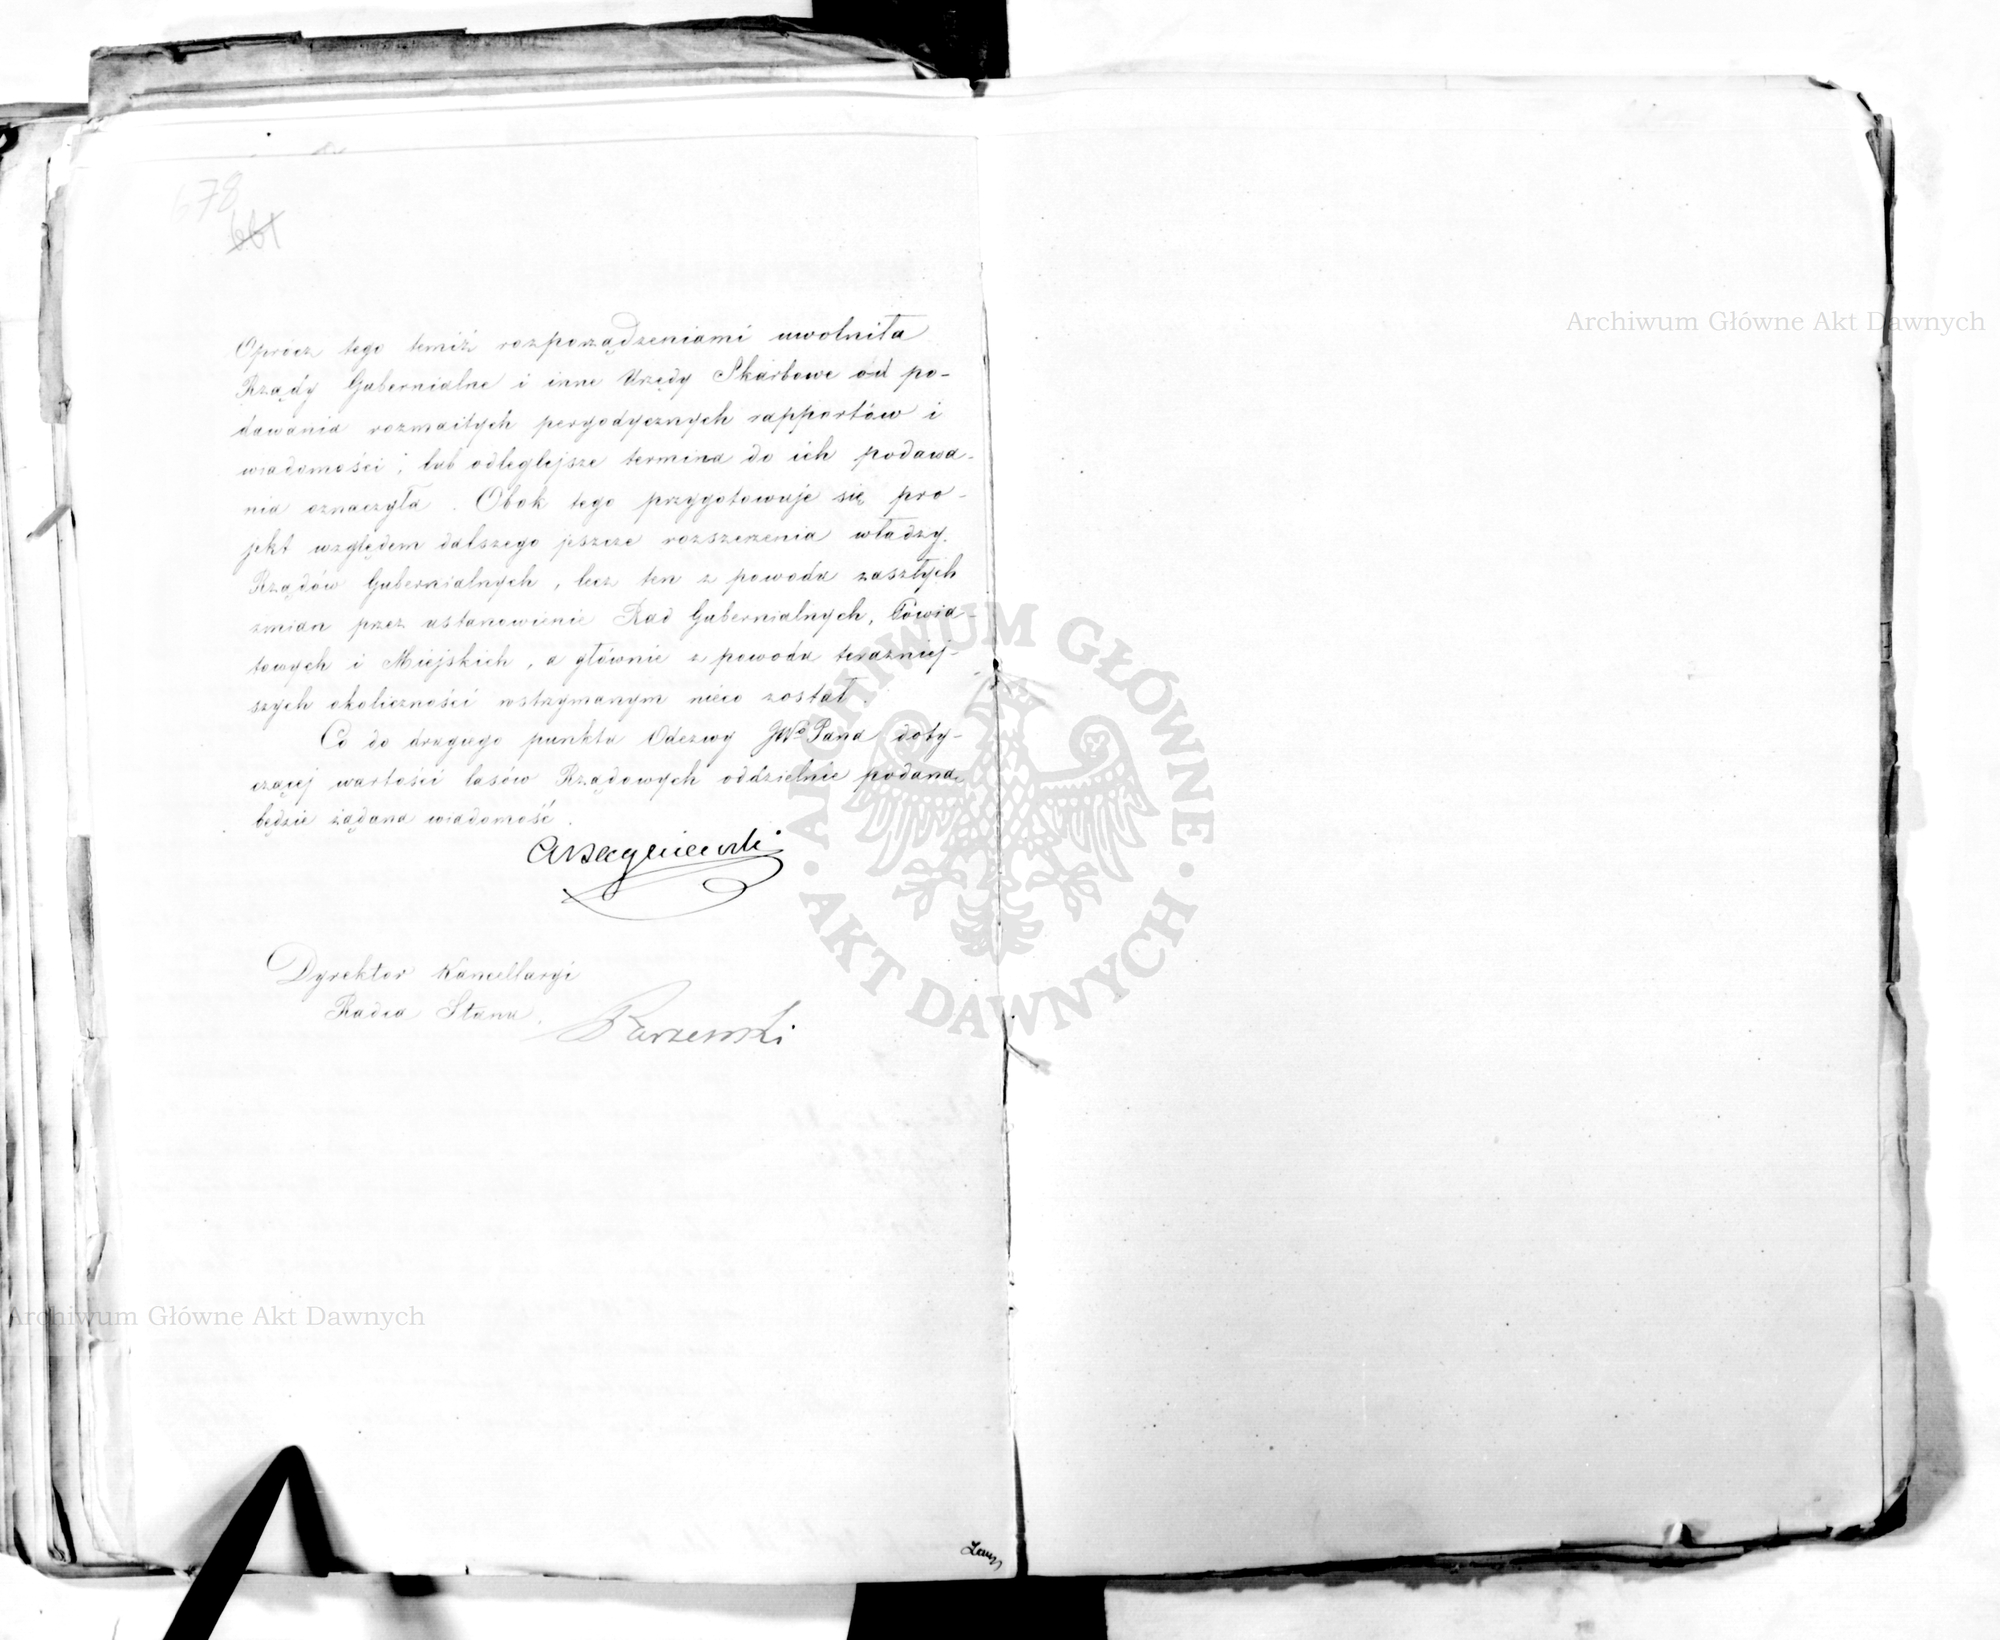 678
661
Oprócz tego temiż rozporządzeniami uwolniła
Rządy Gubernialne i inne Urzędy Skarbowe od po-
dawania rozmaitych peryodycznych rapportów i
wiadomości, lub odleglejsze termina do ich podawa-
nia oznaczyła. Obok tego przygotowuje się pro-
jekt względem dalszego jeszcze rozszerzenia władzy
Rządów Gubernialnych, lecz ten z powodu zaszłych
zmian przez ustanowienie Rad Gubernialnych, Powia-
towych i Miejskich, a głównie z powodu teraźniej-
szych okoliczności wstrzymanym nieco został.
Co do drugiego punktu Odezwy JWo Pana doty-
czącej wartości lasów Rządowych oddzielnie podana
będzie żądana wiadomość.
Dyrektor Kancellaryi
Radca Stanu
Archiwum Główne Akt Dawnych
ARCHIWUM GŁÓWNE AKT DAWNYCH
Archiwum Główne Akt Dawnych